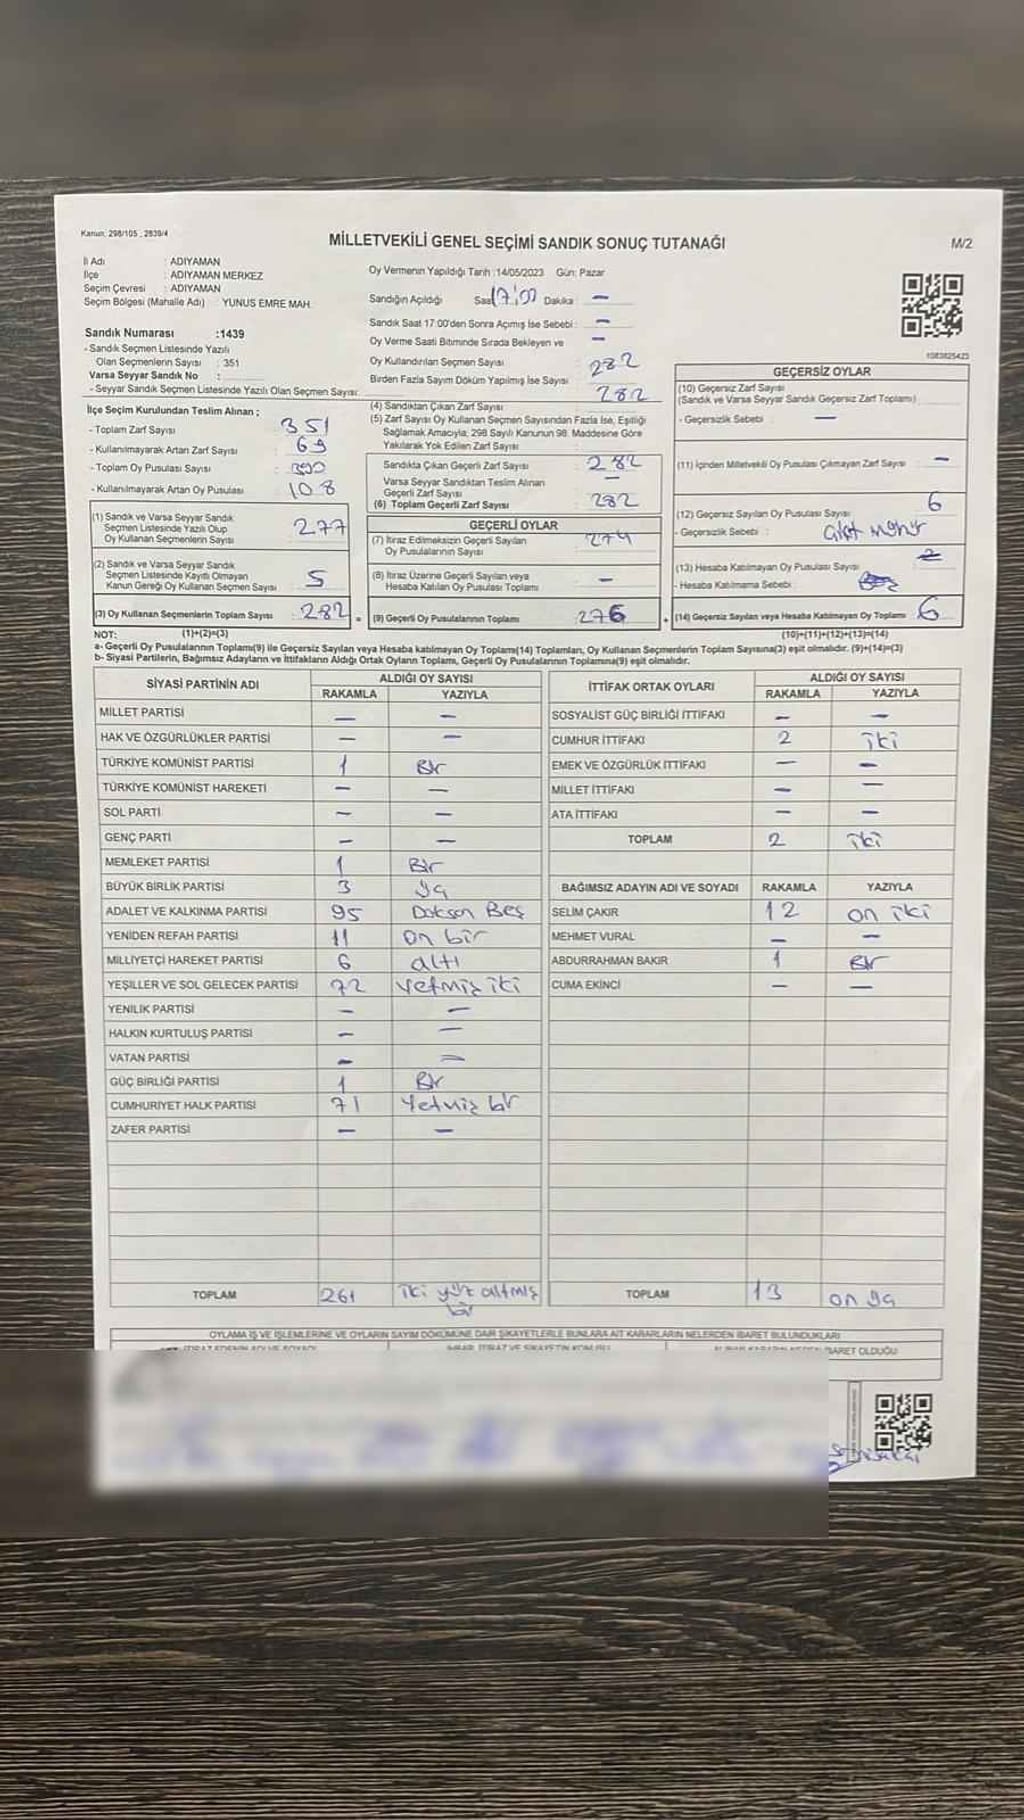 Kanun: 298/105 , 2839/4
MİLLETVEKİLİ GENEL SEÇİMİ SANDIK SONUÇ TUTANAĞI
M/2
İl Adı : ADIYAMAN
İlçe : ADIYAMAN MERKEZ
Seçim Çevresi : ADIYAMAN
Seçim Bölgesi (Mahalle Adı) YUNUS EMRE MAH.
Sandık Numarası :1439
- Sandık Seçmen Listesinde Yazılı
Olan Seçmenlerin Sayısı : 351
Varsa Seyyar Sandık No :
- Seyyar Sandık Seçmen Listesinde Yazılı Olan Seçmen Sayısı:
İlçe Seçim Kurulundan Teslim Alınan ;
- Toplam Zarf Sayısı : 351
- Kullanılmayarak Artan Zarf Sayısı : 69
- Toplam Oy Pusulası Sayısı : 390
- Kullanılmayarak Artan Oy Pusulası : 108
(1) Sandık ve Varsa Seyyar Sandık
Seçmen Listesinde Yazılı Olup
Oy Kullanan Seçmenlerin Sayısı : 277
(2) Sandık ve Varsa Seyyar Sandık
Seçmen Listesinde Kayıtlı Olmayan
Kanun Gereği Oy Kullanan Seçmen Sayısı : 5
(3) Oy Kullanan Seçmenlerin Toplam Sayısı : 282 =
Oy Vermenin Yapıldığı Tarih :14/05/2023 Gün: Pazar
Sandığın Açıldığı Saat 17:00 Dakika : —
Sandık Saat 17:00'den Sonra Açılmış İse Sebebi : —
Oy Verme Saati Bitiminde Sırada Bekleyen ve —
Oy Kullandırılan Seçmen Sayısı : 282
Birden Fazla Sayım Döküm Yapılmış İse Sayısı : 282
(4) Sandıktan Çıkan Zarf Sayısı
(5) Zarf Sayısı Oy Kullanan Seçmen Sayısından Fazla İse, Eşitliği
Sağlamak Amacıyla, 298 Sayılı Kanunun 98. Maddesine Göre
Yakılarak Yok Edilen Zarf Sayısı
Sandıkta Çıkan Geçerli Zarf Sayısı : 282
Varsa Seyyar Sandıktan Teslim Alınan
Geçerli Zarf Sayısı : —
(6) Toplam Geçerli Zarf Sayısı : 282
GEÇERLİ OYLAR
(7) İtiraz Edilmeksizin Geçerli Sayılan
Oy Pusulalarının Sayısı :
(8) İtiraz Üzerine Geçerli Sayılan veya
Hesaba Katılan Oy Pusulası Toplamı : —
(9) Geçerli Oy Pusulalarının Toplamı : 276 +
1083825423
GEÇERSİZ OYLAR
(10) Geçersiz Zarf Sayısı
(Sandık ve Varsa Seyyar Sandık Geçersiz Zarf Toplamı)
- Geçersizlik Sebebi : —
(11) İçinden Milletvekili Oy Pusulası Çıkmayan Zarf Sayısı —
(12) Geçersiz Sayılan Oy Pusulası Sayısı 6
- Geçersizlik Sebebi :
(13) Hesaba Katılmayan Oy Pusulası Sayısı
- Hesaba Katılmama Sebebi :
(14) Geçersiz Sayılan veya Hesaba Katılmayan Oy Toplamı : 6
NOT: (1)+(2)=(3) (10)+(11)+(12)+(13)=(14)
a- Geçerli Oy Pusulalarının Toplamı(9) ile Geçersiz Sayılan veya Hesaba katılmayan Oy Toplamı(14) Toplamları, Oy Kullanan Seçmenlerin Toplam Sayısına(3) eşit olmalıdır. (9)+(14)=(3)
b- Siyasi Partilerin, Bağımsız Adayların ve İttifakların Aldığı Ortak Oyların Toplamı, Geçerli Oy Pusulalarının Toplamına(9) eşit olmalıdır.
SİYASİ PARTİNİN ADI ALDIĞI OY SAYISI
RAKAMLA YAZIYLA
MİLLET PARTİSİ — —
HAK VE ÖZGÜRLÜKLER PARTİSİ — —
TÜRKİYE KOMÜNİST PARTİSİ 1 Bir
TÜRKİYE KOMÜNİST HAREKETİ — —
SOL PARTİ — —
GENÇ PARTİ — —
MEMLEKET PARTİSİ 1 Bir
BÜYÜK BİRLİK PARTİSİ 3 üç
ADALET VE KALKINMA PARTİSİ 95 Doksan Beş
YENİDEN REFAH PARTİSİ 11 on bir
MİLLİYETÇİ HAREKET PARTİSİ 6 altı
YEŞİLLER VE SOL GELECEK PARTİSİ 72 Yetmiş iki
YENİLİK PARTİSİ — —
HALKIN KURTULUŞ PARTİSİ — —
VATAN PARTİSİ — —
GÜÇ BİRLİĞİ PARTİSİ 1 Bir
CUMHURİYET HALK PARTİSİ 71 Yetmiş bir
ZAFER PARTİSİ — —
TOPLAM 261 iki yüz altmış
bir
İTTİFAK ORTAK OYLARI ALDIĞI OY SAYISI
RAKAMLA YAZIYLA
SOSYALİST GÜÇ BİRLİĞİ İTTİFAKI — —
CUMHUR İTTİFAKI 2 iki
EMEK VE ÖZGÜRLÜK İTTİFAKI — —
MİLLET İTTİFAKI — —
ATA İTTİFAKI — —
TOPLAM 2 iki
BAĞIMSIZ ADAYIN ADI VE SOYADI RAKAMLA YAZIYLA
SELİM ÇAKIR 12 on iki
MEHMET VURAL — —
ABDURRAHMAN BAKIR 1 Bir
CUMA EKİNCİ — —
TOPLAM 13 on üç
OYLAMA İŞ VE İŞLEMLERİNE VE OYLARIN SAYIM DÖKÜMÜNE DAİR ŞİKAYETLERLE BUNLARA AİT KARARLARIN NELERDEN İBARET BULUNDUKLARI
İBARET OLDUĞU